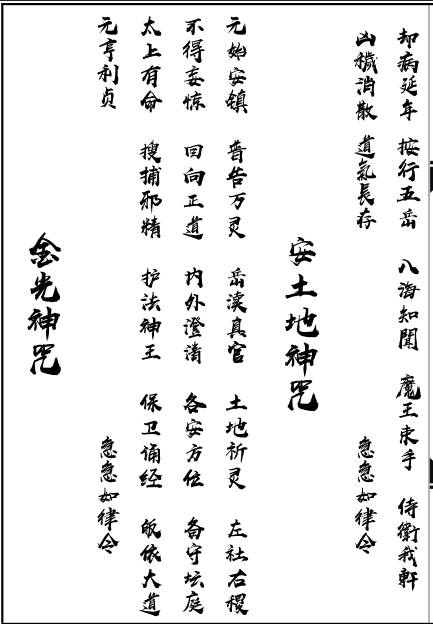 却病延年 按行五岳 八海知聞 魔王束手 侍衛我軒
凶穢消散 道氣長存 急急如律令
安土地神咒
元始安镇 普告万灵 岳渎真官 土地祈灵 左社右稷
不得妄惊 回向正道 内外澄清 各安方位 备守坛庭
太上有命 搜捕邪精 护法神王 保卫诵经 皈依大道
元亨利贞 急急如律令
金光神咒